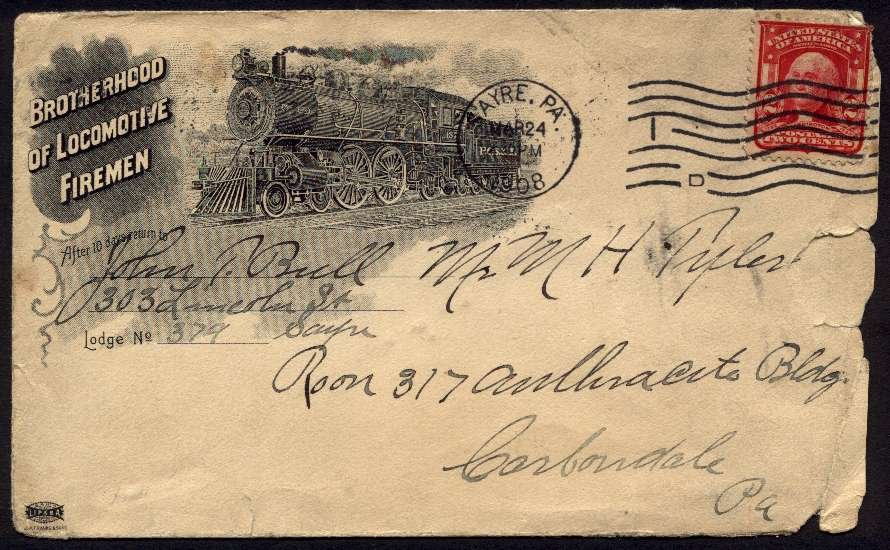 BROTHERHOOD
OF LOCOMOTIVE
FIREMEN
SAYRE, PA.
MAR 24
PM
1908
I
D
UNITED STATES
OF AMERICA
2 2
TWO CENTS
After 10 days return to
John T. Bull
303 Lincoln St
Lodge No 379 Sayre
Mr M H Tyler
Room 317 Anthracite Bldg.
Carbondale
Pa